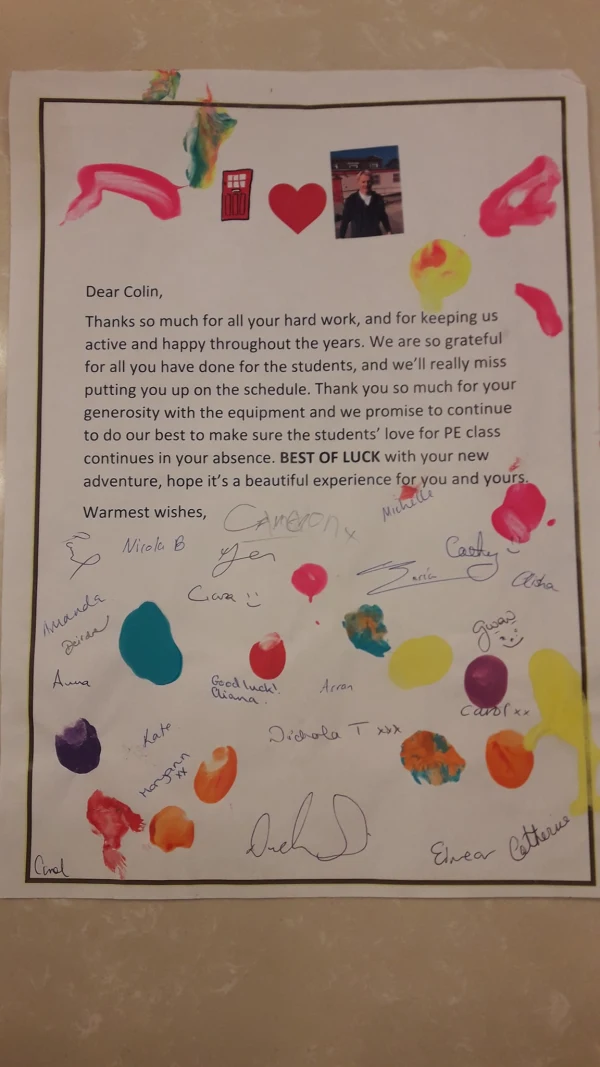 Dear Colin,
Thanks so much for all your hard work, and for keeping us
active and happy throughout the years. We are so grateful
for all you have done for the students, and we'll really miss
putting you up on the schedule. Thank you so much for your
generosity with the equipment and we promise to continue
to do our best to make sure the students' love for PE class
continues in your absence. BEST OF LUCK with your new
adventure, hope it's a beautiful experience for you and yours.
Warmest wishes,
Cameron x
Michelle
Nicola B
Jen
Cathy
Ciara
Amanda
Deirdre
Gwen
Anna
Good luck!
Arran
Carol xx
Kate
Nichola T xxx
Morgann
xx
Eimear
Catherine